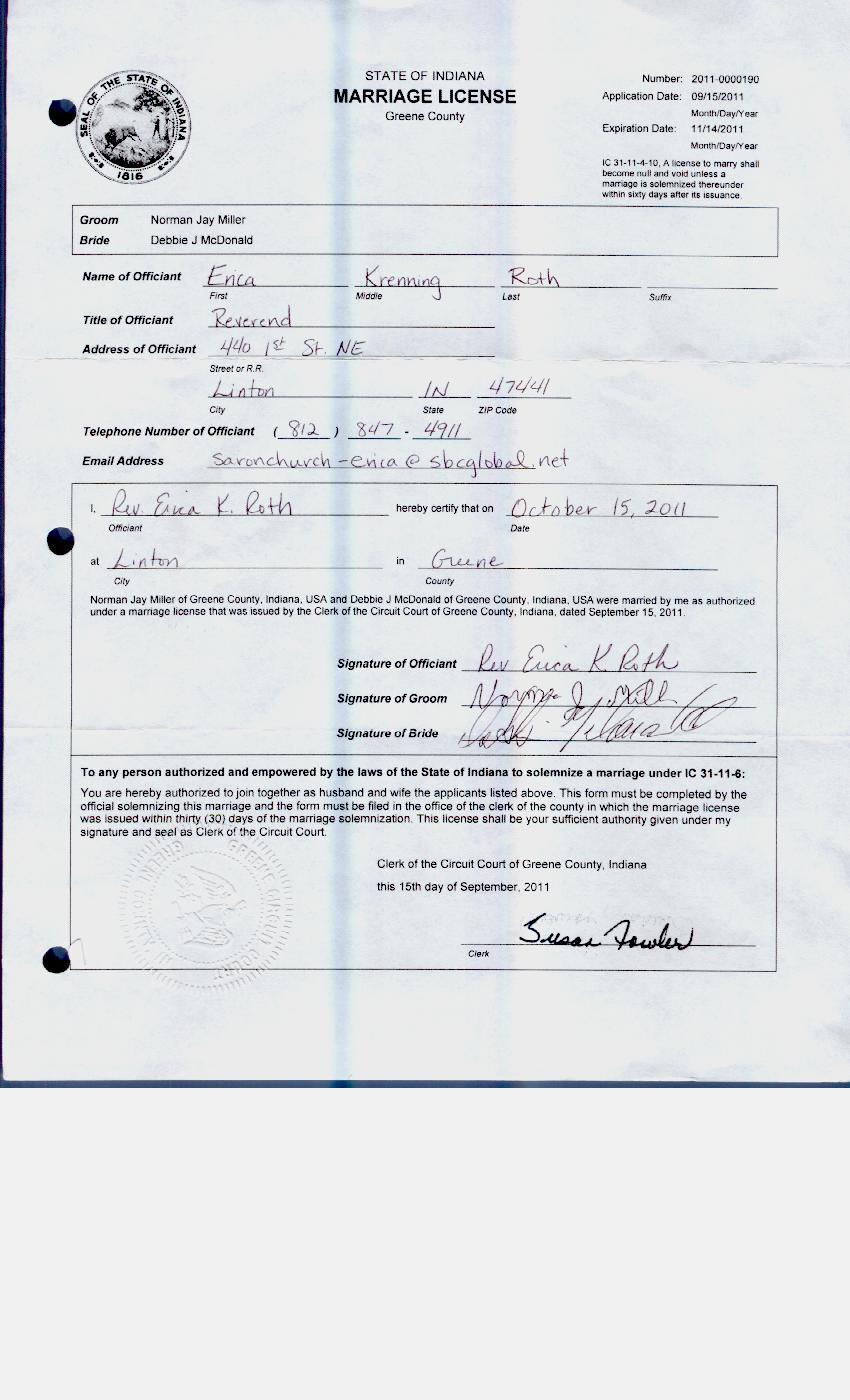 STATE OF INDIANA
MARRIAGE LICENSE
Greene County
SEAL OF THE STATE OF INDIANA
1816
Number: 2011-0000190
Application Date: 09/15/2011
Month/Day/Year
Expiration Date: 11/14/2011
Month/Day/Year
IC 31-11-4-10, A license to marry shall
become null and void unless a
marriage is solemnized thereunder
within sixty days after its issuance.
Groom Norman Jay Miller
Bride Debbie J McDonald
Name of Officiant Erica Krenning Roth
First Middle Last Suffix
Title of Officiant Reverend
Address of Officiant 440 1st St. NE
Street or R.R.
Linton IN 47441
City State ZIP Code
Telephone Number of Officiant (812) 847-4911
Email Address saronchurch-erica@sbcglobal.net
I, Rev. Erica K. Roth hereby certify that on October 15, 2011
Officiant Date
at Linton in Greene
City County
Norman Jay Miller of Greene County, Indiana, USA and Debbie J McDonald of Greene County, Indiana, USA were married by me as authorized
under a marriage license that was issued by the Clerk of the Circuit Court of Greene County, Indiana, dated September 15, 2011.
Signature of Officiant Rev Erica K Roth
Signature of Groom Norman J Mill
Signature of Bride
To any person authorized and empowered by the laws of the State of Indiana to solemnize a marriage under IC 31-11-6:
You are hereby authorized to join together as husband and wife the applicants listed above. This form must be completed by the
official solemnizing this marriage and the form must be filed in the office of the clerk of the county in which the marriage license
was issued within thirty (30) days of the marriage solemnization. This license shall be your sufficient authority given under my
signature and seal as Clerk of the Circuit Court.
Clerk of the Circuit Court of Greene County, Indiana
this 15th day of September, 2011
Susan Fowler
Clerk